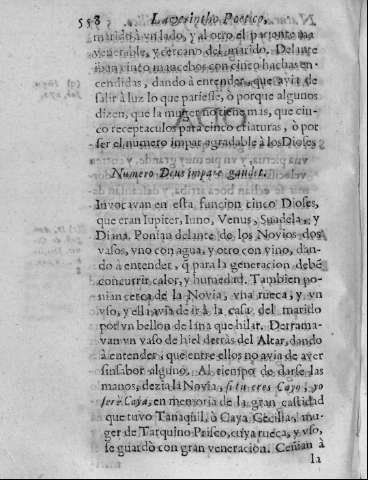 558 Labyrintho Poetico,
marido à vn lado, y al otro el pariente mas
venerable, y cercano del marido. Delante
iban cinco mancebos con cinco hachas en-
cendidas, dando à entender, que avia de
salir à luz lo que pariesse, ò porque algunos
dizen, que la muger no tiene mas, que cin-
co receptaculos para cinco criaturas, ò por
ser el numero impar agradable à los Dioses
Numero Deus impare gaudet.
Invocavan en esta funcion cinco Dioses,
que eran Iupiter, Iuno, Venus, Suadela, y
Diana. Ponian delante de los Novios dos
vasos, vno con agua, y otro con vino, dan-
do à entender, q̃ para la generacion debẽ
concurrir calor, y humedad. Tambien po-
nian cerca de la Novia, vna rueca, y vn
vso, y ella avia de ir à la casa del marido
por vn bellon de lana que hilar. Derrama-
van vn vaso de hiel detràs del Altar, dando
à entender, que entre ellos no avia de aver
sinsabor alguno. Al tiempo de darse las
manos, dezia la Novia, si tu eres Cayo, yo
serè Caya, en memoria de la gran castidad
que tuvo Tanaquil, ò Caya Cecilia, mu-
ger de Tarquino Prisco, cuya rueca, y vso,
se guardò con gran veneracion. Ceñian à
la